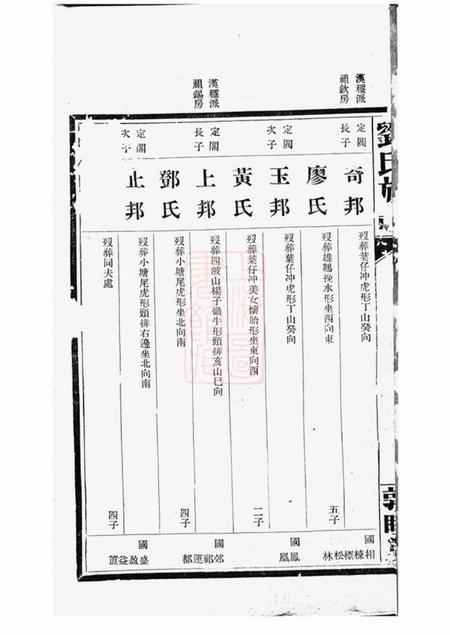 劉氏族
漢穩派
祖欽房
定閥
長子
奇邦
歿葬葉仔冲虎形丁山癸向
廖氏
歿葬雄鵝挽水形坐酉向東
五子
國
相棟標松林
定閥
次子
玉邦
歿葬葉仔冲虎形丁山癸向
黃氏
歿葬葉仔冲美女懷胎形坐東向西
二子
國
鳳凰
漢穩派
祖錫房
定閣
長子
上邦
歿葬四設山楊子嶺牛形頭排亥山巳向
鄧氏
歿葬小塘尾虎形坐北向南
四子
國
郊祁逕都
定閣
次子
止邦
歿葬小塘尾虎形頭排右邊坐北向南
歿葬同夫處
四子
國
盛盈益